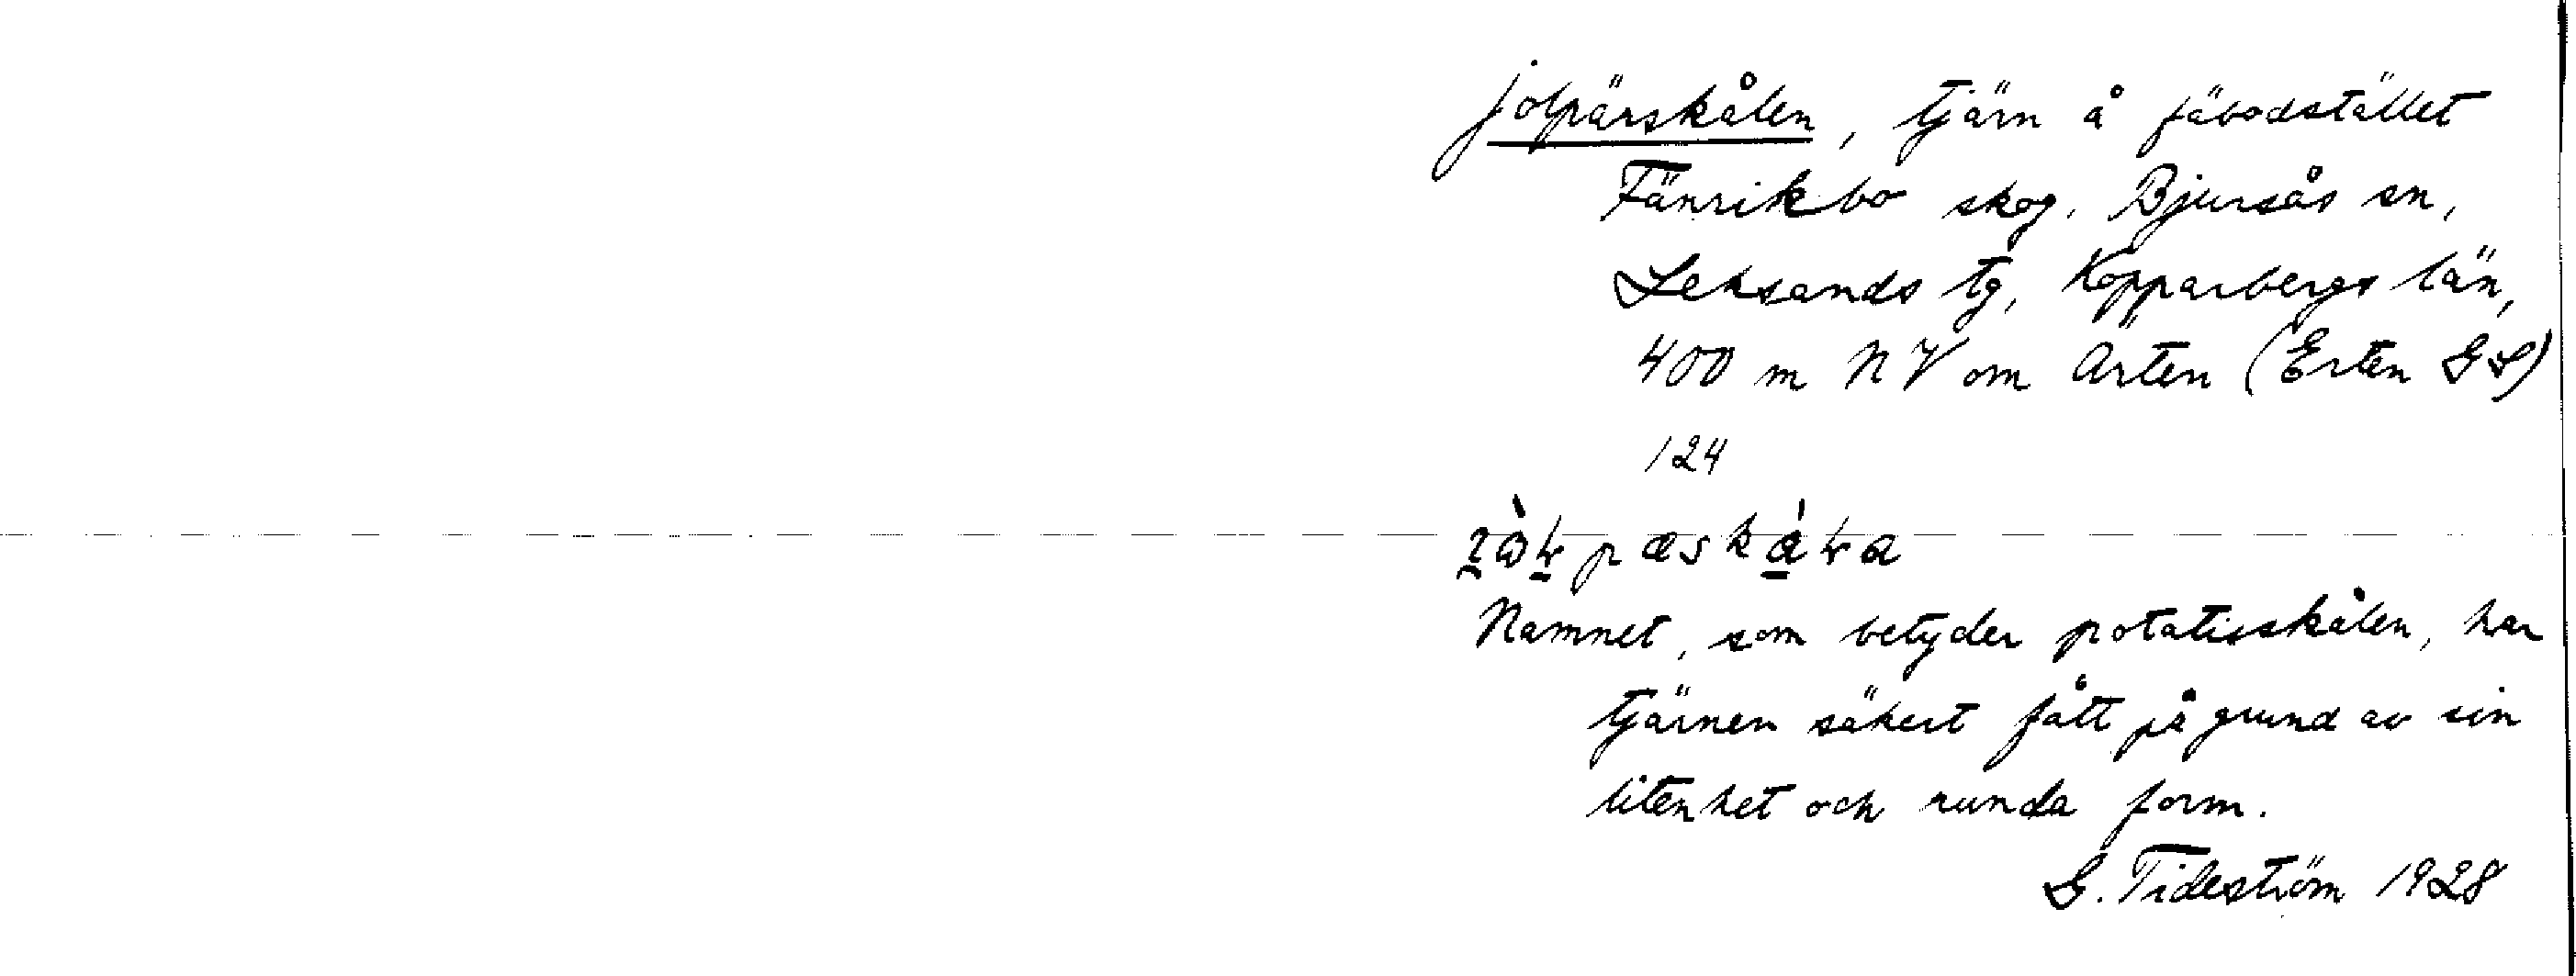 Jolpärskålen, tjärn å fäbodstället
Fänrikbo skog, Bjursås sn,
Leksands tg, Kopparbergs län,
400 m NV om Ärten (Erten GS)
124
Namnet, som betyder potatisskålen, har
tjärnen säkert fått på grund av sin
litenhet och runda form.
G. Tideström 1928